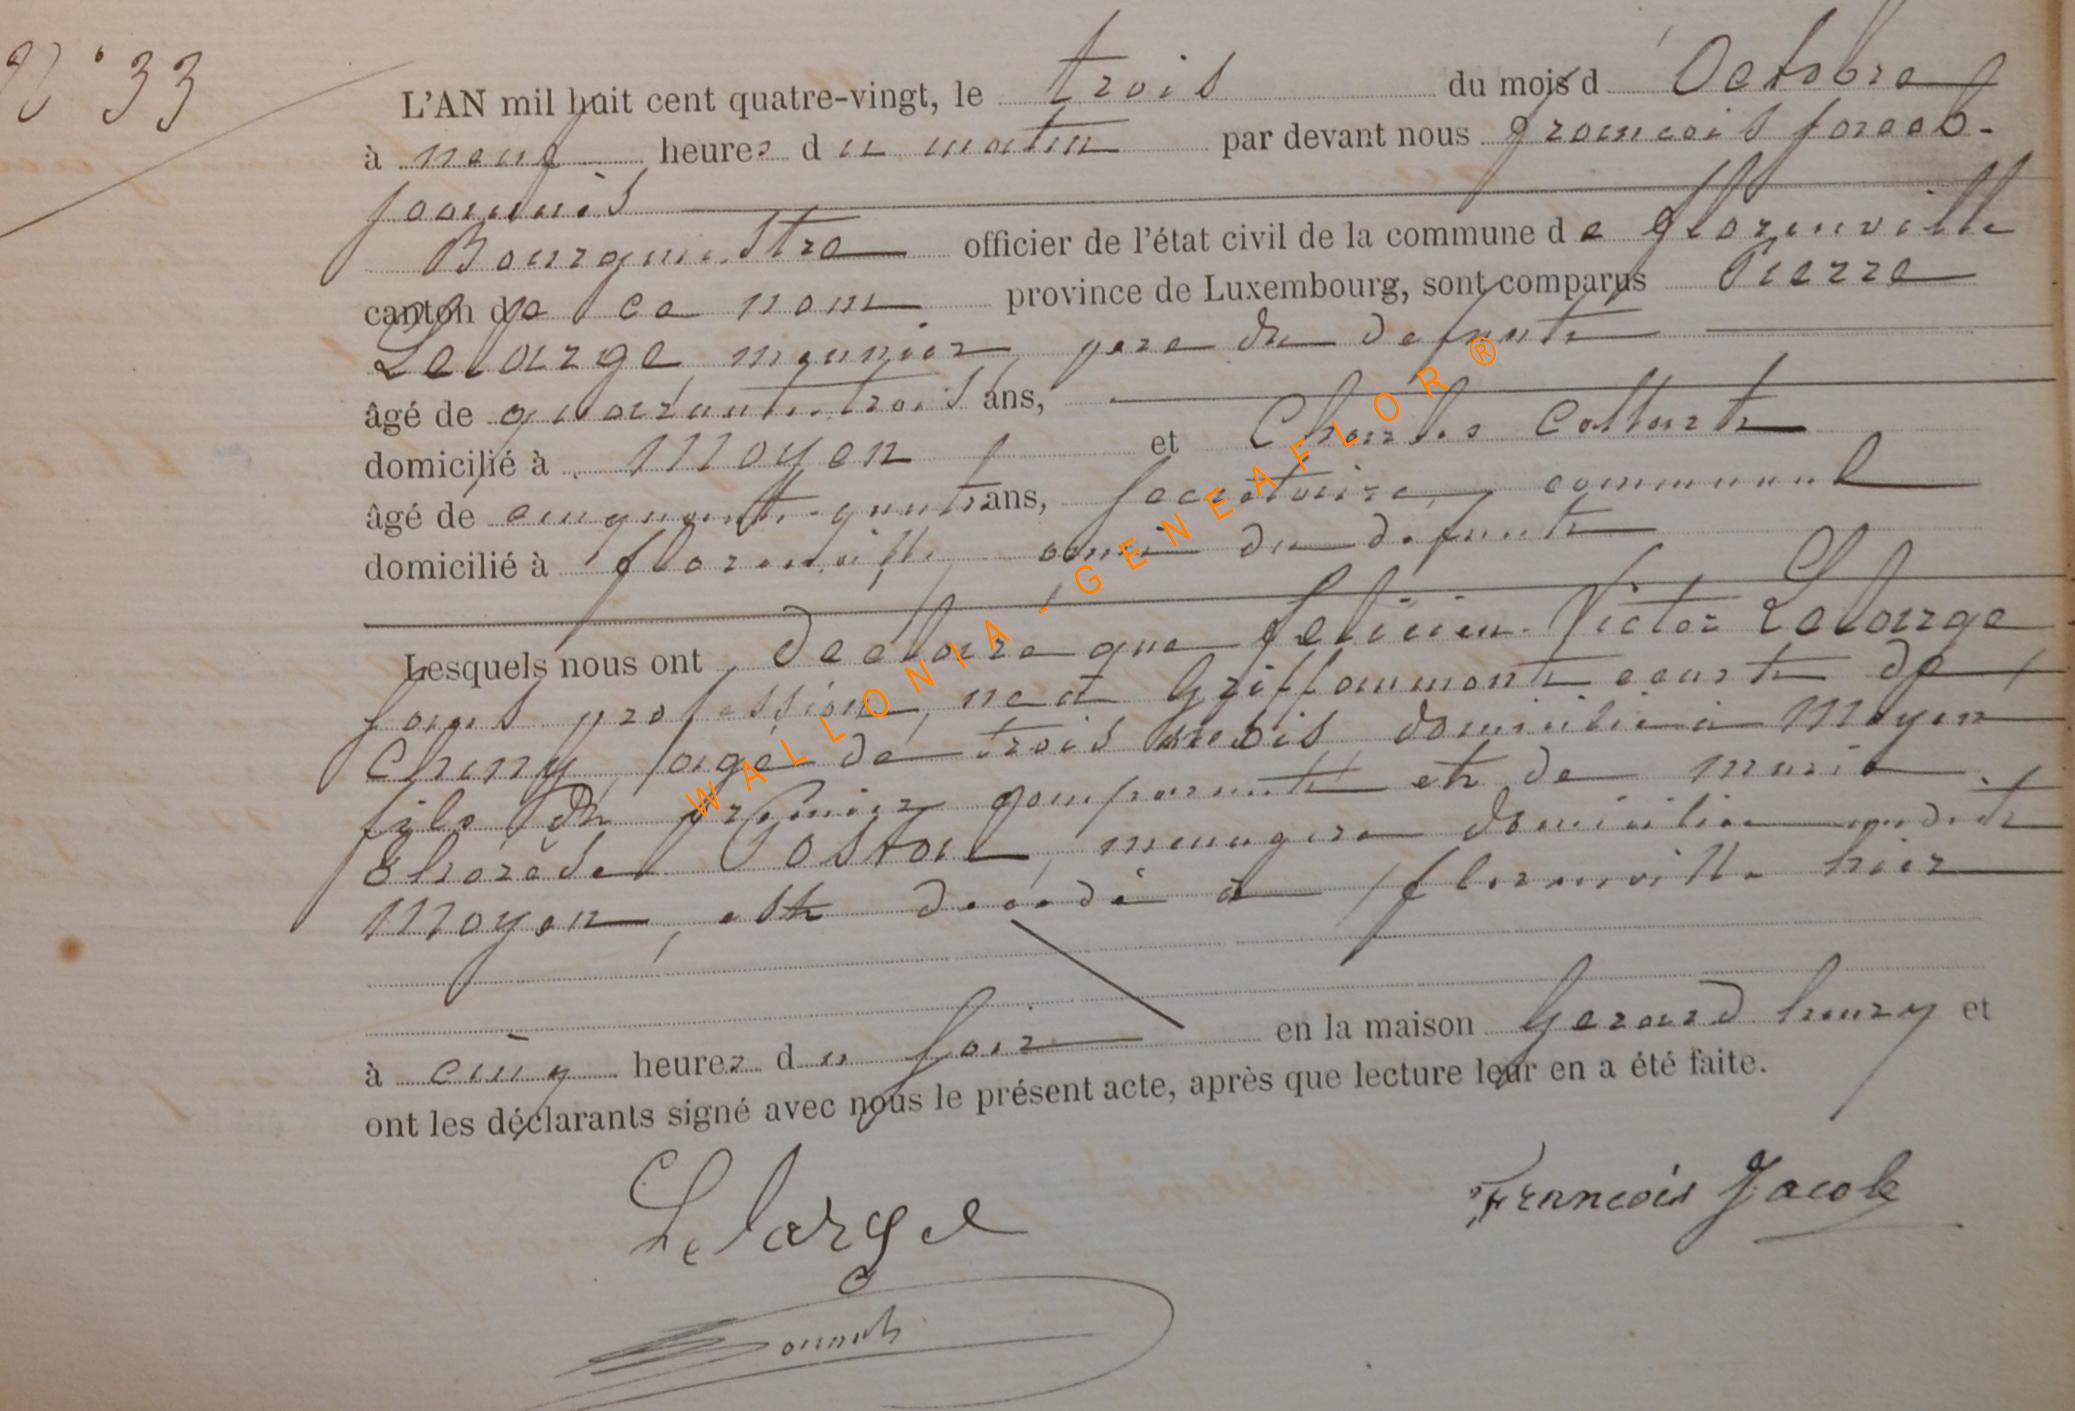 N° 33
L'AN mil huit cent quatre-vingt, le trois du mois d'Octobre
à neuf heures du matin par devant nous François Jacob-
Bourgmestre officier de l'état civil de la commune de Florenville
canton de ce nom province de Luxembourg, sont comparus Pierre
Lelarge, meunier, pere du defunt
âgé de quarante trois ans,
domicilié à Moyen et Charles
âgé de cinquante-quatre ans, Secretaire communal
domicilié à florenville ami du defunt
Lesquels nous ont declaré que felicien Victor Lelarge
sans profession, né à Griffaumont ecart de
Chiny, agé de trois mois domicilié à Moyen
fils du premier comparant et de marie
therèse Postal, menagere domiciliee audit
Moyen, est decedé à florenville hier
à cinq heures du soir en la maison Gerard henry et
ont les déclarants signé avec nous le présent acte, après que lecture leur en a été faite.
Lelarge
François Jacob
WALLONIA - GENEAFLOR ®